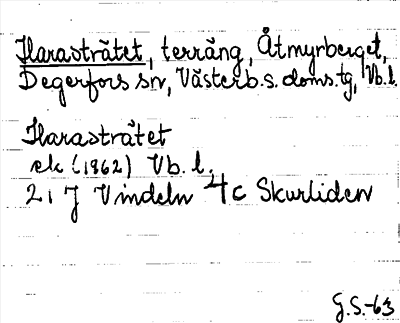 Harasträtet, terräng, Åtmyrberget,
Degerfors sn, Västerb.s.doms.tg, Vb.l.
Harasträtet
ek (1962) Vb.l.
21 J Vindeln 4c Skurliden
G.S.-63